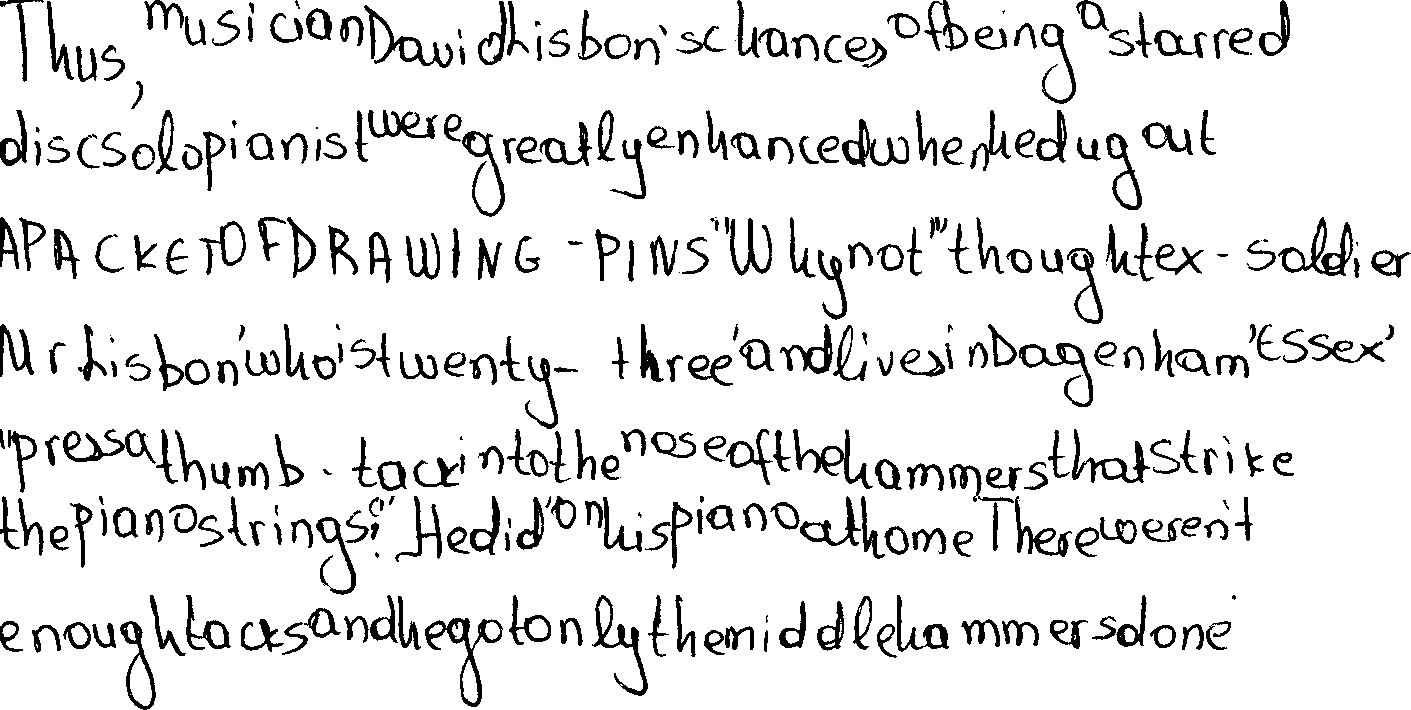 Thus, musician David Lisbon's chances of being a starred
disc solo pianist were greatly enhanced when he dug out
A PACKET OF DRAWING-PINS "Why not" thought ex-soldier
Mr Lisbon 'who is twenty-three' and lives in Dagenham 'Essex'
"press a thumb-tack into the nose of the hammers that strike
the piano strings?" He did 'on his piano at home There weren't
enough tacks and he got only the middle hammers done